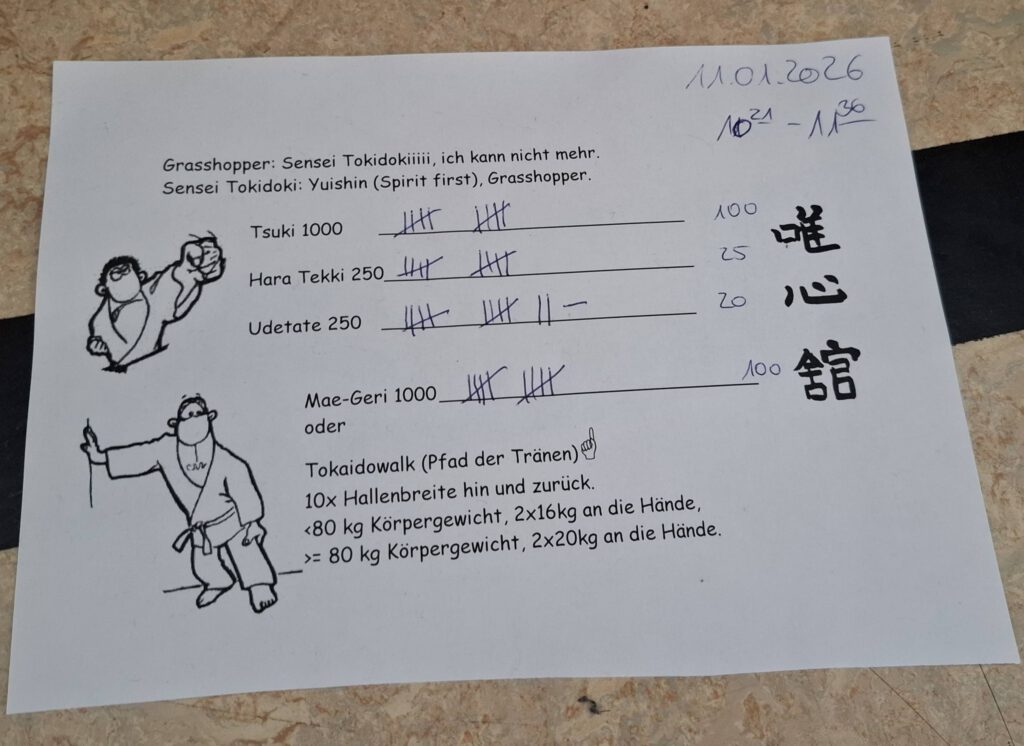 11.01.2026
10²¹ - 11³⁶
Grasshopper: Sensei Tokidokiiiii, ich kann nicht mehr.
Sensei Tokidoki: Yuishin (Spirit first), Grasshopper.
Tsuki 1000 100
Hara Tekki 250 25
Udetate 250 || – 20
Mae-Geri 1000 100
oder
Tokaidowalk (Pfad der Tränen)
10x Hallenbreite hin und zurück.
<80 kg Körpergewicht, 2x16kg an die Hände,
>= 80 kg Körpergewicht, 2x20kg an die Hände.
唯
心
舘